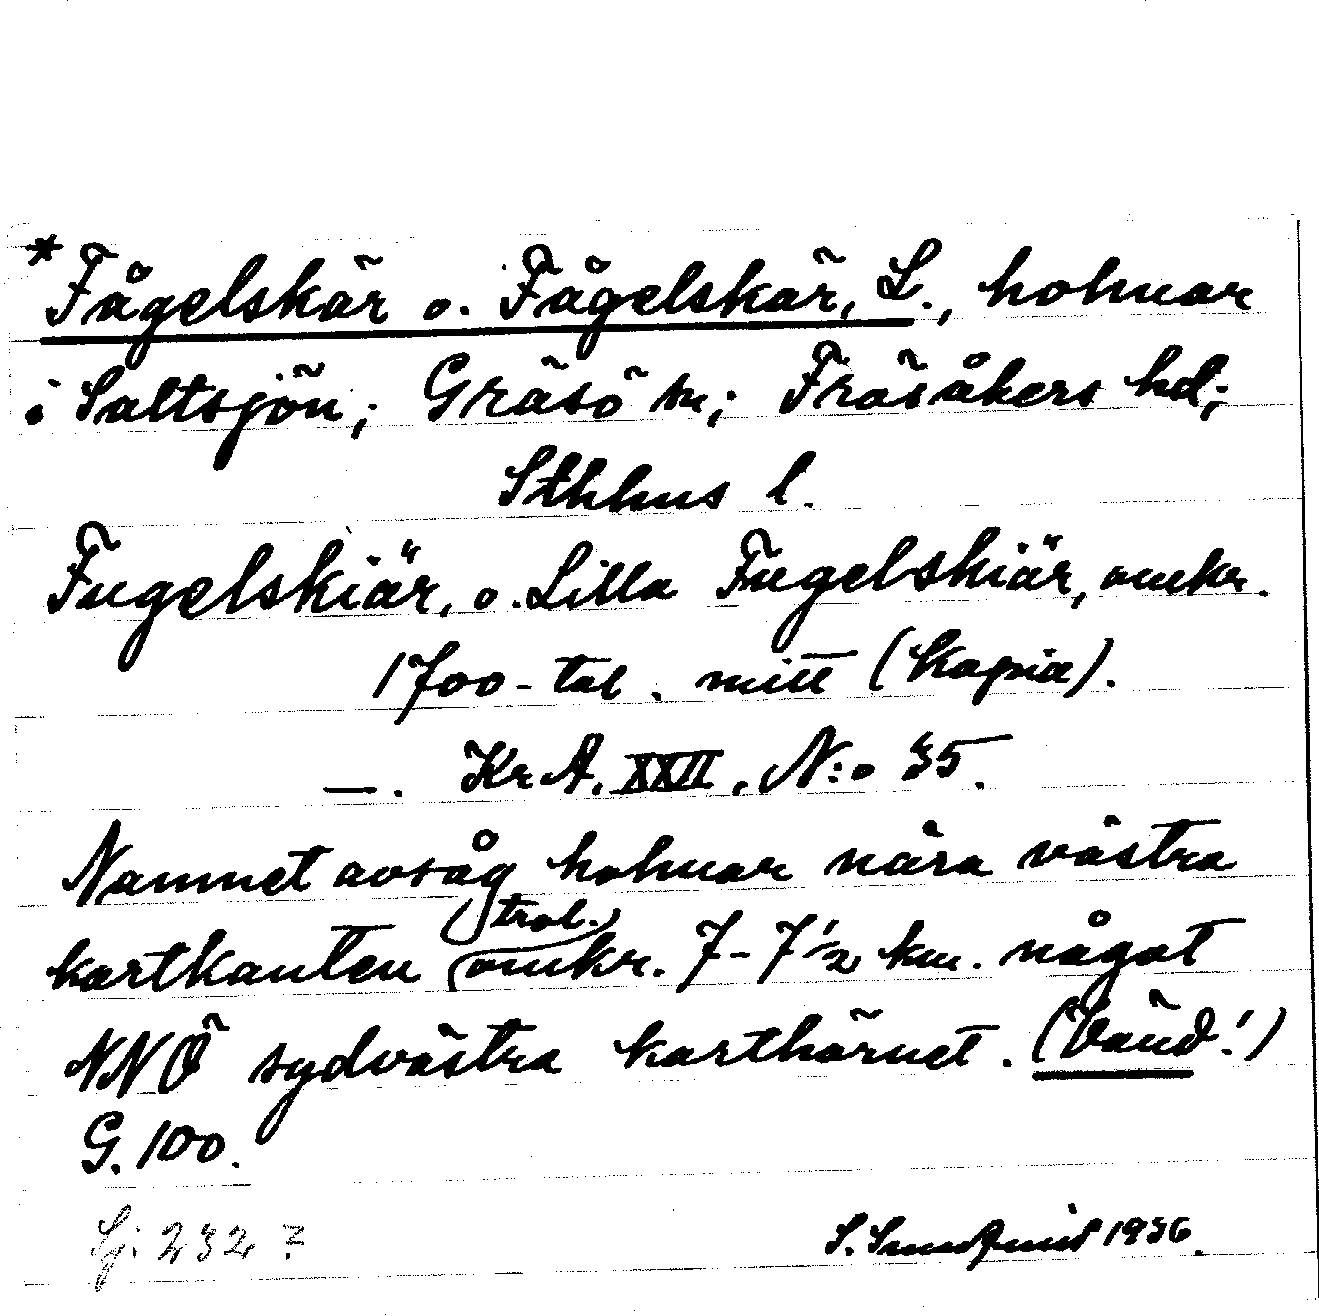 *Fågelskär o. Fågelskär, L., holmar
i Saltsjön; Gräsö sn; Frösåkers hd;
Sthlms l.
Fugelskiär, o. Lilla Fugelskiär, omkr.
1700-tal. mitt (Kopia).
—. KrA. XXVII, N:o 35.
Namnet avsåg holmar nära västra
kartkanten (trol.) omkr. 7-7 1/2 km. något
NNÖ sydvästra karthörnet. (Vänd!)
G. 100.
Sj. 232 ?
S. 1936.